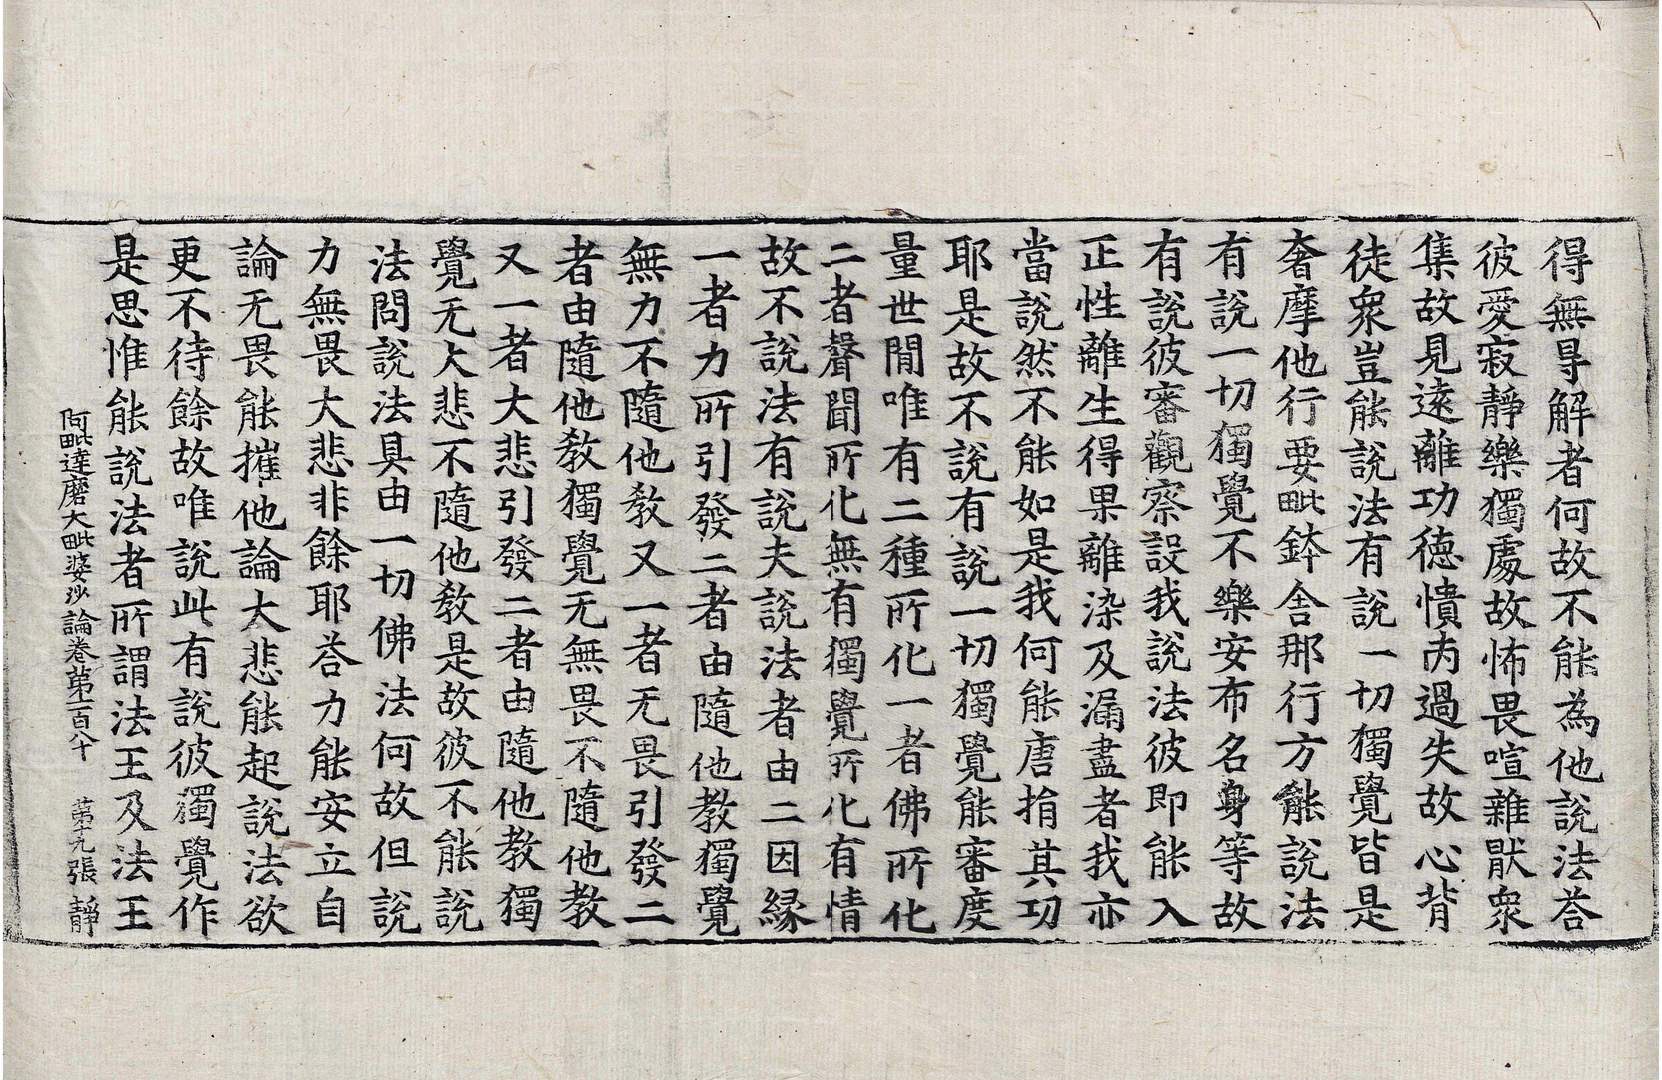 得無㝵解者何故不能為他說法荅
彼愛寂靜樂獨處故怖畏喧雜猒衆
集故見遠離功德憒丙過失故心背
徒衆豈能說法有說一切獨覺皆是
奢摩他行要毗鉢舍那行方能說法
有說一切獨覺不樂安布名身等故
有說彼審觀察設我說法彼即能入
正性離生得果離染及漏盡者我亦
當說然不能如是我何能唐捐其功
耶是故不說有說一切獨覺能審度
量世閒唯有二種所化一者佛所化
二者聲聞所化無有獨覺所化有情
故不說法有說夫說法者由二因緣
一者力所引發二者由隨他教獨覺
無力不隨他教又一者无畏引發二
者由隨他教獨覺无無畏不隨他教
又一者大悲引發二者由隨他教獨
覺无大悲不隨他教是故彼不能說
法問說法具由一切佛法何故但說
力無畏大悲非餘耶荅力能安立自
論无畏能摧他論大悲能起說法欲
更不待餘故唯說此有說彼獨覺作
是思惟能說法者所謂法王及法王
阿毗達磨大毗婆沙論卷第一百八十 第十九張 靜